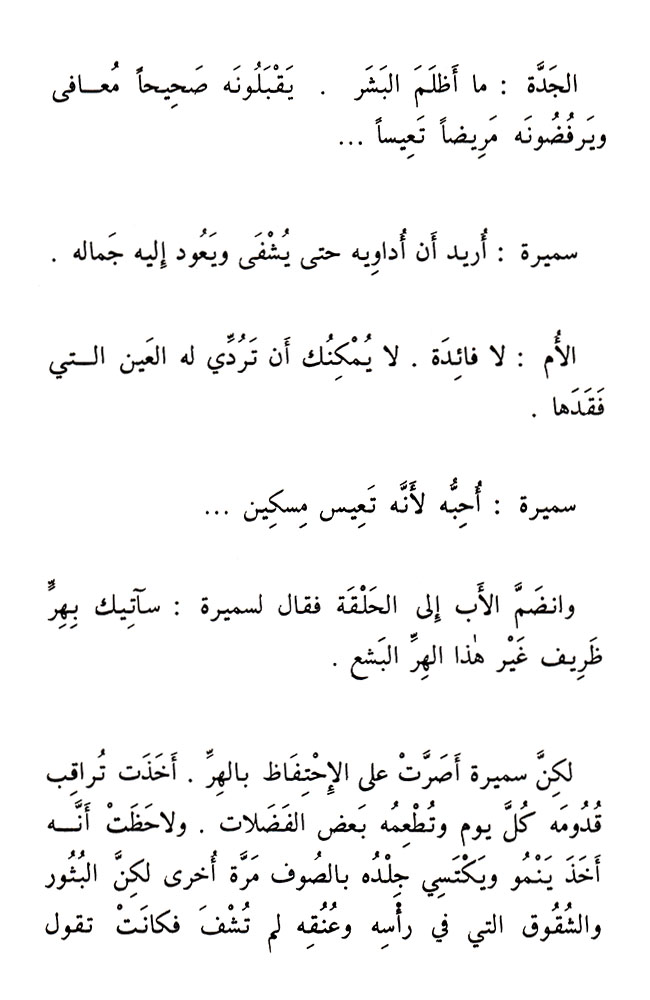 الجَدَّة : ما أَظلَمَ البَشَر . يَقْبَلُونَه صَحِيحاً مُعـافى
ويَرفُضُونَه مَرِيضاً تَعِيساً ...
سميرة : أُريد أَن أُداوِيه حتى يُشْفَى ويَعُود إِليه جَماله .
الأُم : لا فائِدَة . لا يُمْكِنُك أَن تَرُدِّي له العَين الـتي
فَقَدَها .
سميرة : أُحِبُّه لأَنَّه تَعِيس مِسكِين ...
وانضَمَّ الأَب إِلى الحَلْقَة فقال لسميرة : سآتِيك بِهِرٍّ
ظَرِيف غَيْر هٰذا الهِرِّ البَشع .
لكِنَّ سميرة أَصَرَّتْ على الإِحْتِفَاظ بالهِرِّ . أَخَذَت تُراقِب
قُدُومَه كُلَّ يوم وتُطْعِمُه بَعض الفَضَلات . ولاحَظَتْ أَنَّـه
أَخَذَ يَنْمُو ويَكْتَسِي جِلْدُه بالصُوف مَرَّة أُخرى لكِنَّ البُثُور
والشُقُوق التي في رأْسِه وعُنُقِه لم تُشْفَ فكانَتْ تقول